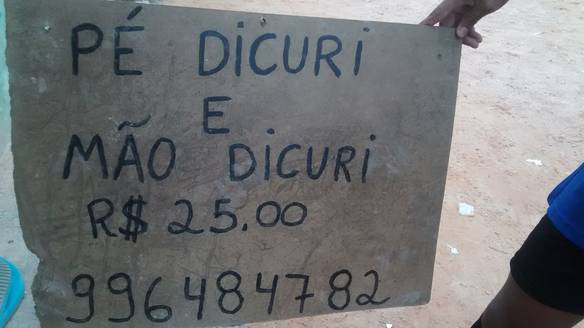 PÉ DiCURi
E
MÃO DiCURi
R$ 25.00
996484782